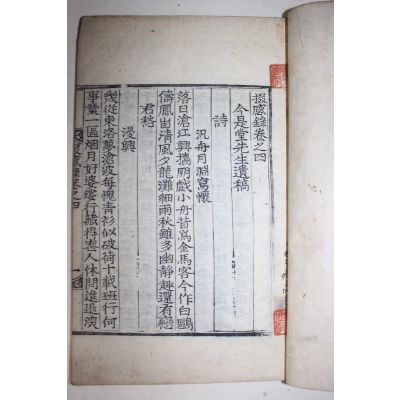 掇感錄卷之四
今是堂先生遺稿
詩
汎舟月淵寫懷
落日滄江興携朋戲小舟昔爲金馬客今作白鷗
儔鳳出清風夕龍灘細雨秋雖多幽静趣還有戀
君愁
漫興
幾從東洛夢滄波每愧青衫似破荷十載班行何
事業一區烟月好婆娑行藏得喪人休問進退深